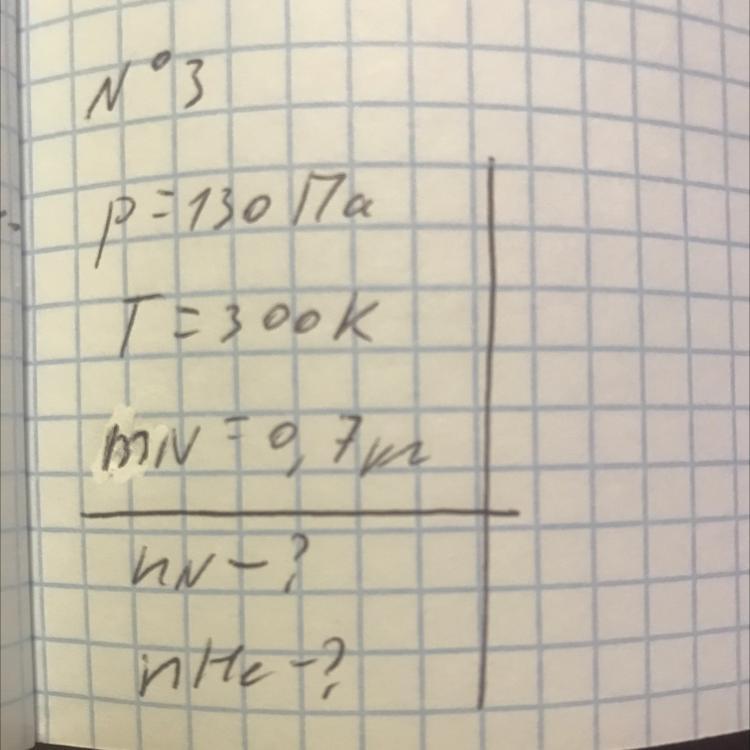 N°3
p=130 Па
T=300К
mN=0,7 кг
nN-?
nHe-?